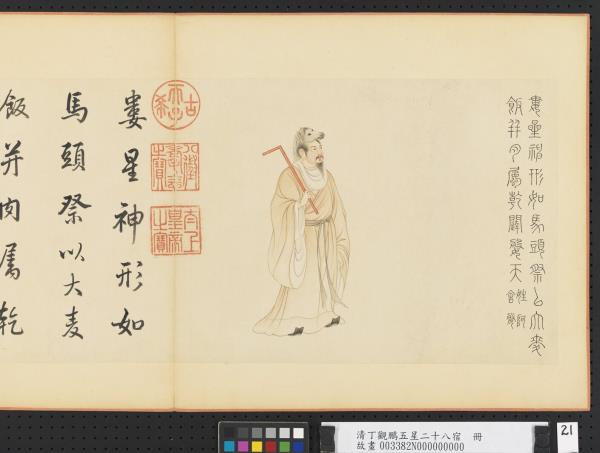 婁星神形如馬頭祭以大麥
飯并肉屬乾闥婆天
姓阿
含婆
古希天子
八徵耄念之寶
太上皇帝之寶
婁星神形如
馬頭祭以大麦
飯并肉屬乾
清丁觀鵬五星二十八宿　冊
故畫 003382N000000000
21